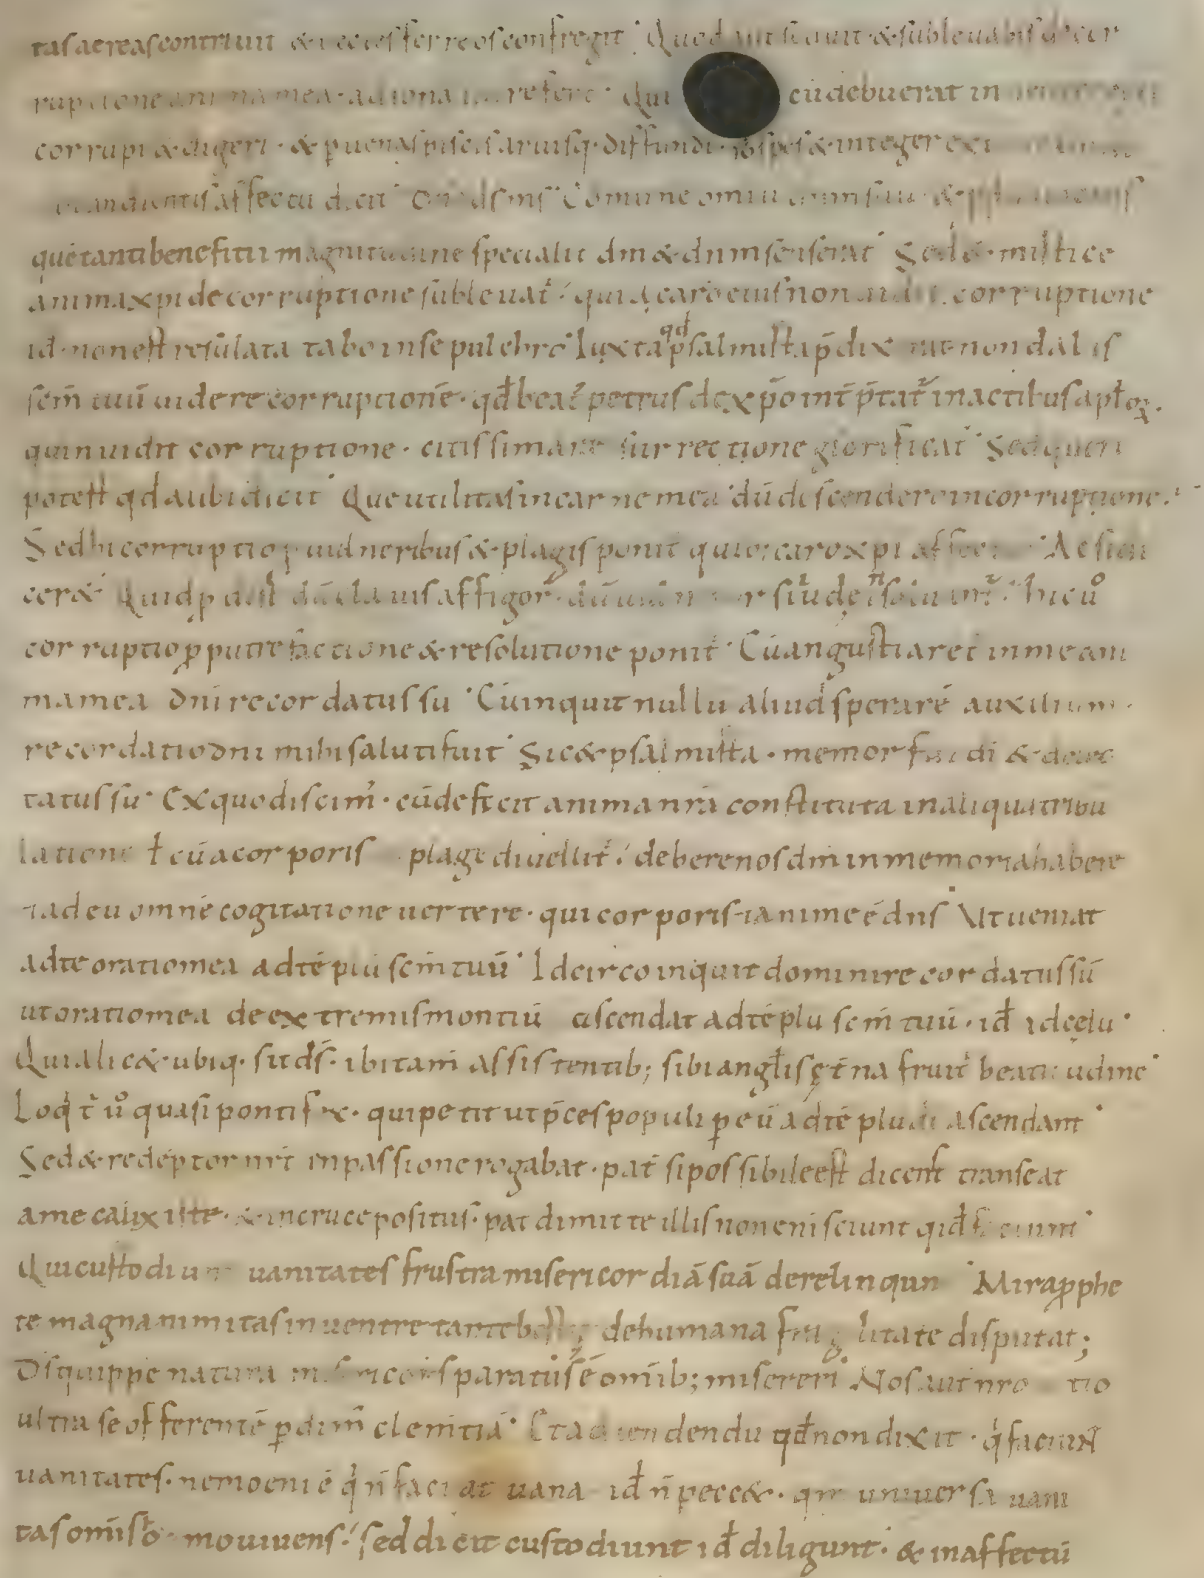 tas aereas contriuit & uectes ferreos confregit. Quod uiuscauit & subleuabis de cor
ruptione anima mea ad dona refere. Qui cu debuerat in
corrumpi & digeri. & p uenas pisces aruisq. diffundi. sospes & integer
affectu dicit. dne ds ms. Comune omiu
que tanti benefitii magnitudine specialit dm & dnm senserat. Sed & mistice
anima xpi de corruptione subleuat; quia caro eius non uidit corruptione
id. non est resoluta tabo in sepulchro. Iuxta qd psalmista pdixerat non dabis
scm tuu uidere corruptione. qd beat petrus de xpo intptat in actibus aplox.
qui n uidit corruptione. citissima resurrectione glorificat. Sed queri
potest qd aubi dicit. Que utilitas in carne mea. du descendero in corruptione.
Sed hi corruptio p uulneribus & plagis ponit quib; caro xpi
cer&. Quid p dest du clauis affigor. du si uide n soluunt. hic u
corruptio p putrefactione & resolutione ponit. Cu angustiaret in me ani
ma mea dni recordatus su. Cu inquit nullu aliud sperare auxilium.
recordatio dni mihi saluti fuit. Sic & psalmista. memor fui di & delec
tatus su. Ex quo discim. cu deficit anima nra constituta in aliqua tribu
latione t cu a corporis plage diuellit; debere nos dm in memoria habere
7 ad eu omne cogitatione uertere. qui corporis 7 anime e dns. Ut ueniat
ad te oratio mea ad te plu scm tuu. Idcirco inquit domini recordatus su
ut oratio mea de extremis montiu ascendat ad te plu scm tuu. id ide celu.
Qui alic& ubiq. sit ds. ibi tam assistentib; sibi anglis et na fruit beatitudine.
Loqt u quasi pontifex. qui petit ut pces populi p eu ad te plu di ascendant.
Sed & redeptor nrt in passione rogabat. pat si possibile est dicens transeat
a me calix iste. & in cruce positus. pat dimitte illis non eni sciunt qid faciunt.
Qui custodiunt uanitates frustra misericordia sua derelinqun. Mira pphe
te magnanimitas in uentre tante bestie de humana fragilitate disputat;
Ds quippe natura misericors paratus e omib; misereri. Nos aut nro tio
ultra se offerente pdim clemtia. Et adtendendu qd non dixit. q faciun
uanitates. nemo eni e q n faciat uana id n pecc&. qm uniuersa uani
tas omis ho mo uiuens; sed dicit custodiunt id diligunt. & in affectu